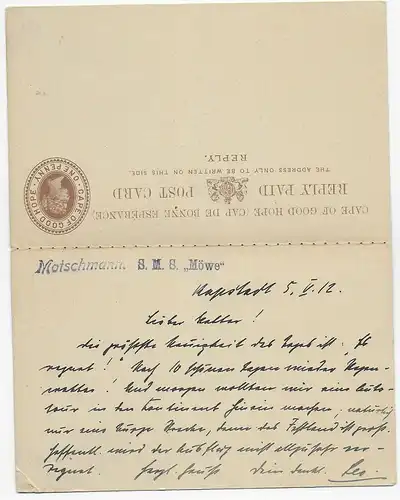 CAPE OF GOOD HOPE (CAP DE BONNE ESPERANCE)
REPLY PAID POST CARD
THE ADDRESS ONLY TO BE WRITTEN ON THIS SIDE.
REPLY.
CAPE OF GOOD HOPE
ONE PENNY
Motschmann. S. M. S. „Möwe"
Kapstadt 5. V. 12.
Lieber Walter!
Die größte Neuigkeit des Tages ist: „Es
regnet!" Nach 10 schönen Tagen wieder Regen-
wetter! Und morgen wollten wir eine Auto-
tour in den Kontinent hinein machen, natürlich
nur eine kurze Strecke, denn das Festland ist groß.
Hoffentl. wird der Ausflug nicht allzusehr ver-
regnet. Herzl. Grüße Dein dankb. Leo.